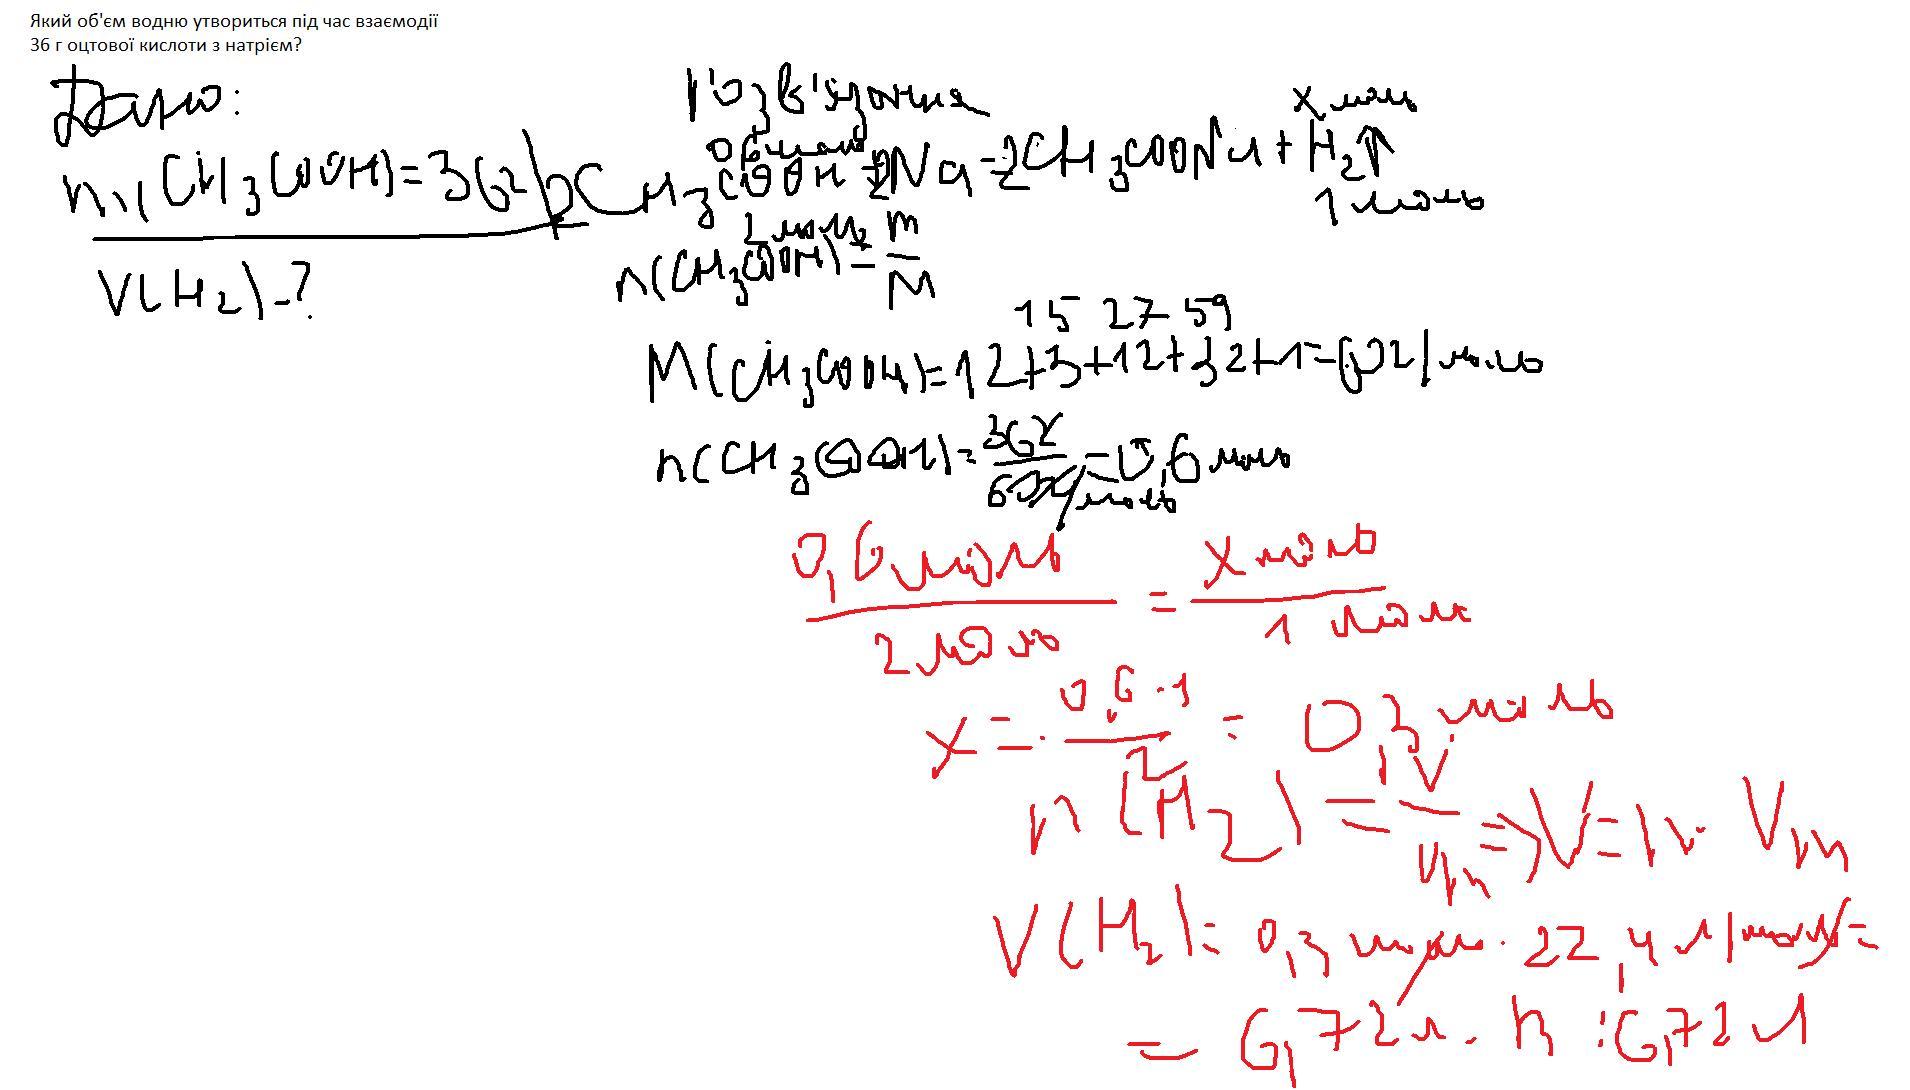 Який об'єм водню утвориться під час взаємодії
36 г оцтової кислоти з натрієм?
Дано:
m(CH3COOH)=36г
V(H2)-?
Розв'язання
0,6 моль x моль
2CH3COOH+2Na=2CH3COONa+H2↑
2 моль 1 моль
n(CH3COOH)=m/M
15 27 59
M(CH3COOH)=12+3+12+32+1=60г/моль
n(CH3COOH)=36г/60г/моль=0,6 моль
0,6 моль/2 моль = x моль/1 моль
x = 0,6·1/2 = 0,3 моль
n(H2)=V/Vm=>V=n·Vm
V(H2)=0,3 моль·22,4 л/моль=
=6,72 л. В:6,72 л